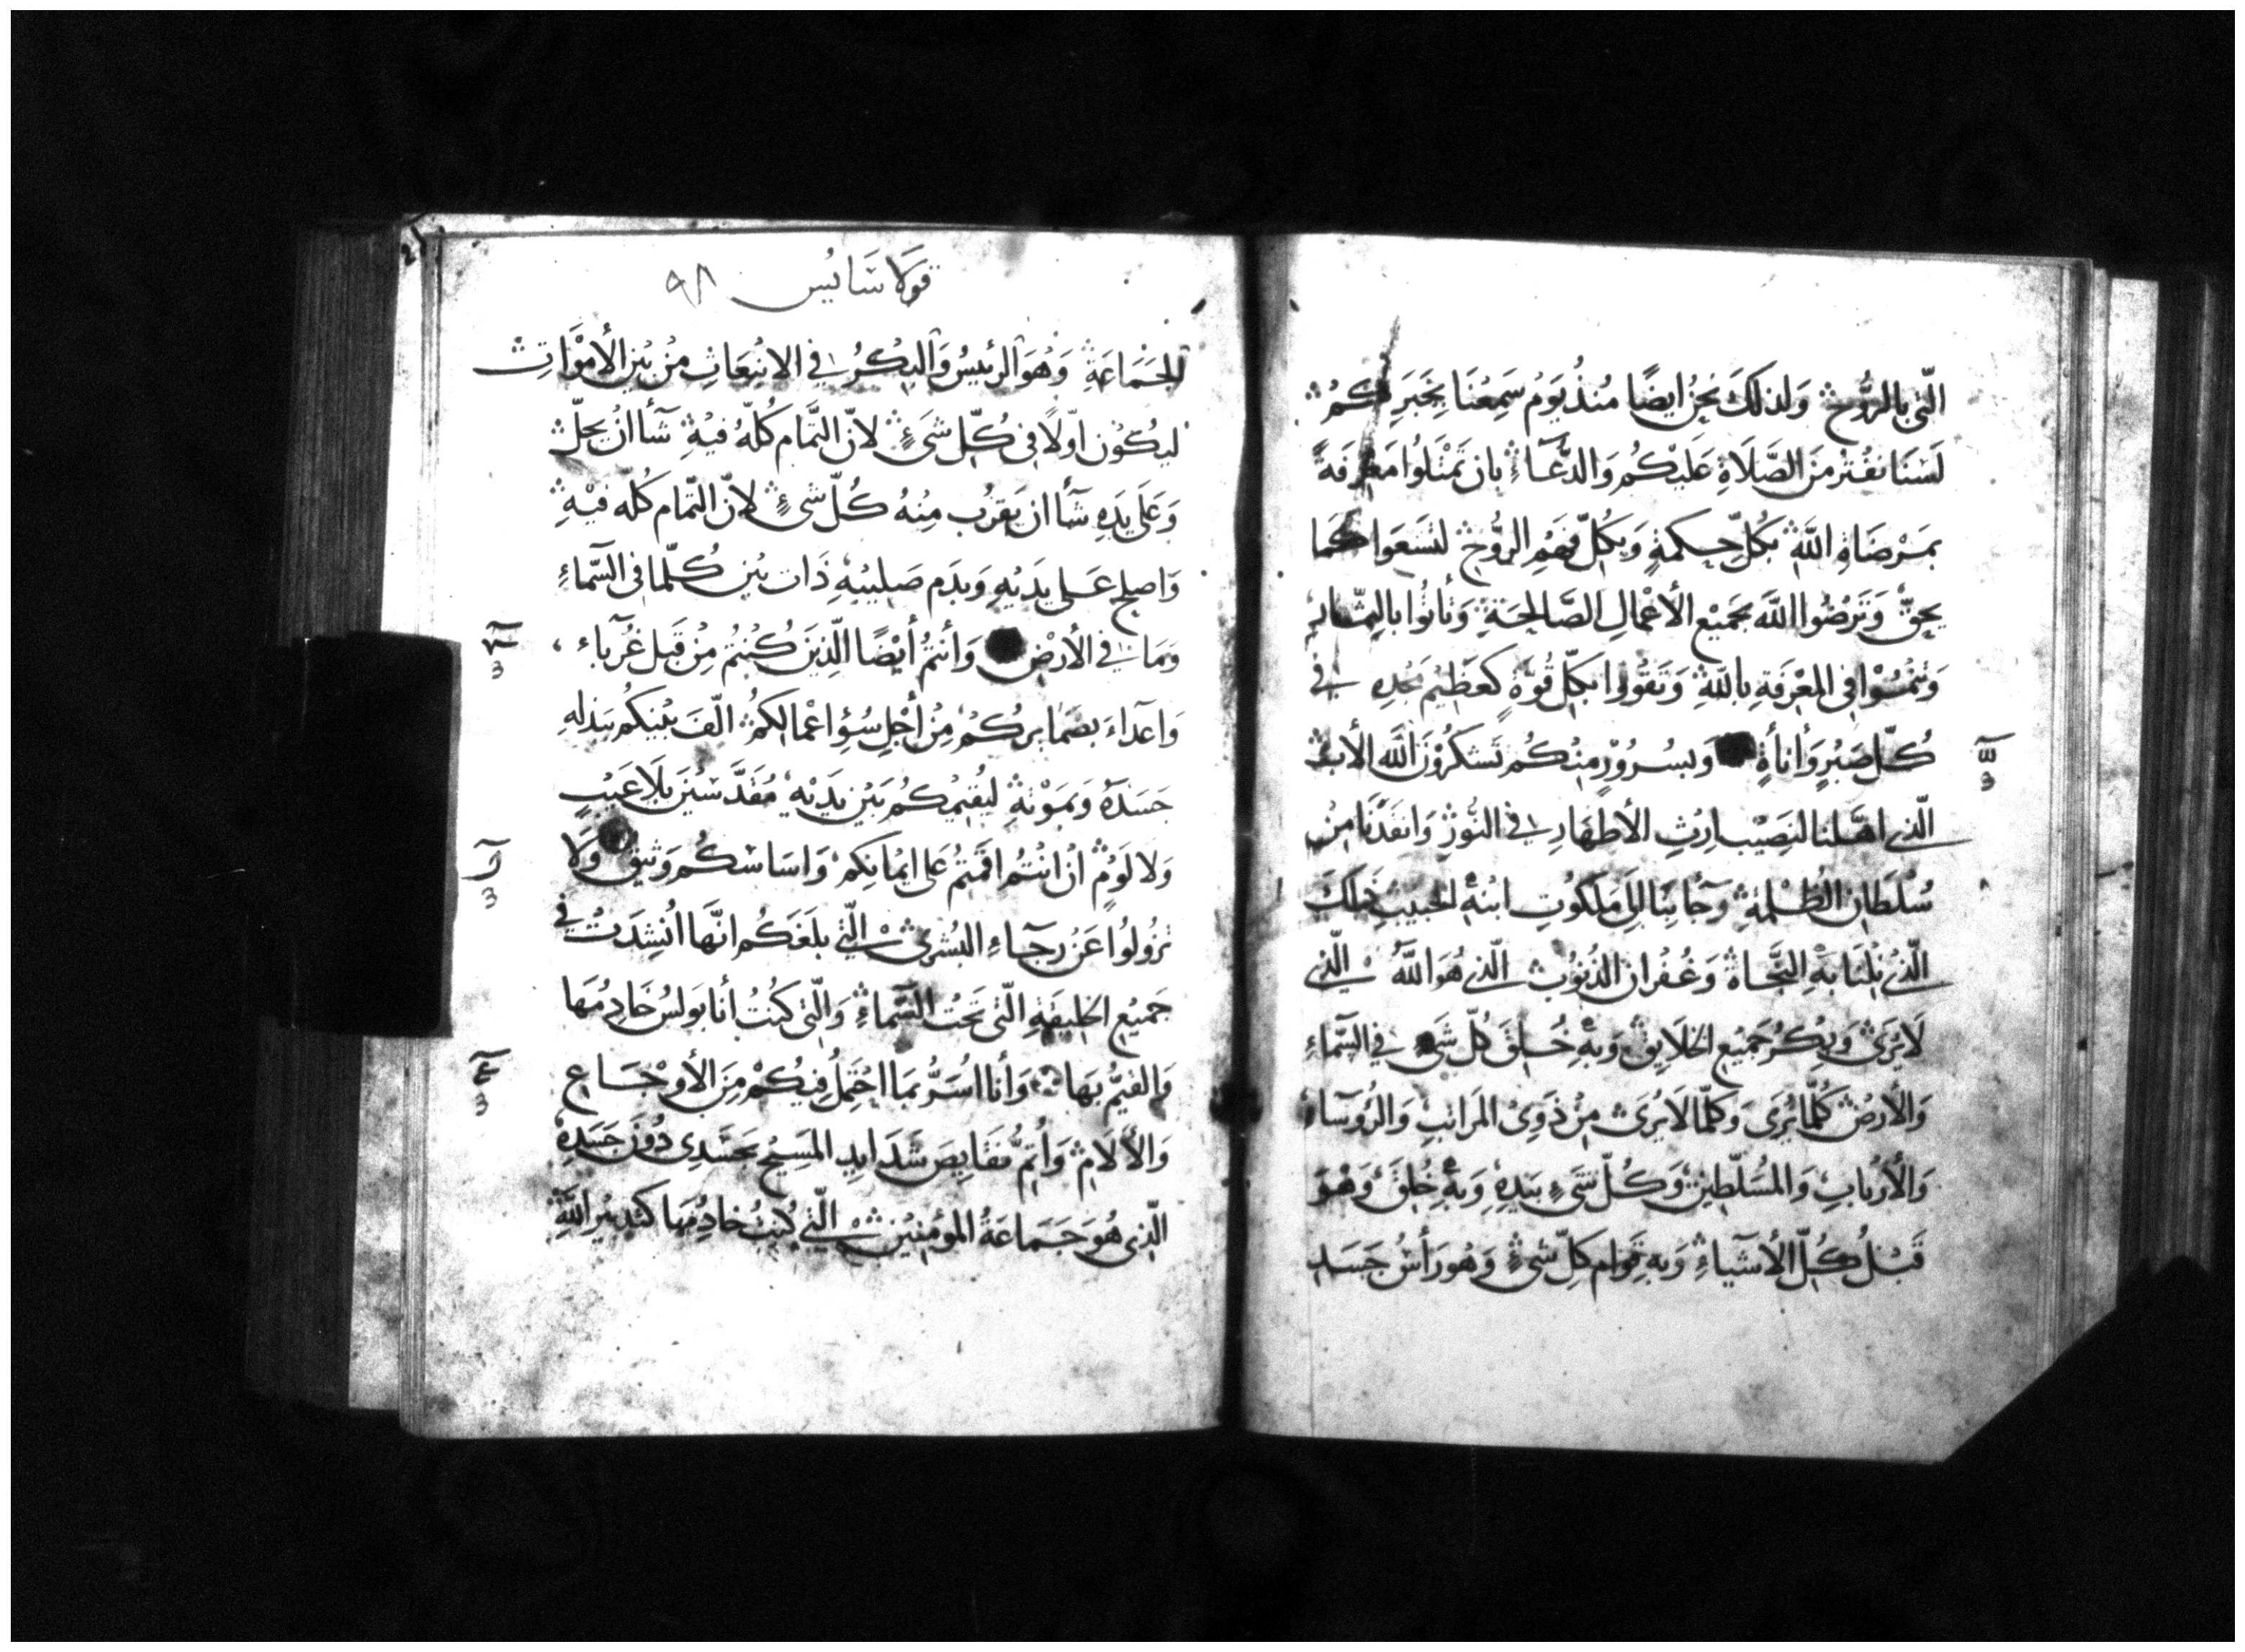 الّتى بالرُّوح وَلذلكَ نحنُ ايضًا مُنذُ يَوْم سَمِعْنَا بخَبَرِكُم
لَسْنَا نفتُر مِنَ الصَّلَاةِ عَليْكُم وَالدُّعَاءِ بان تمْتَلوُا مَعرفَةً
بمَرْضَاةِ اللَّهِ بكُلّ حِكمَةٍ وَبكُلّ فَهْمِ الرُّوحْ لتَسْعَوا كَما
يحِقّ وَتَرضُوا اللَّهَ بجَمِيْعِ الأعْمالِ الصَّالِحَةِ وَتأتوُا بالثّمار
وَتنْمُوْا في المَعْرفَةِ باللَّهِ وَتَقْوَوا بكلّ قُوّةٍ كَعَظِيْم مَجْدِه في
كُلّ صَبْرٍ وَأناةٍ وَبسُرُوْرٍ مِنْكُم تَشكُرُوْنَ اللَّه الأب
الّذى اهّلنا لنَصِيْب ارْثِ الأطهَارِ في النُّوْرْ وَانقَذَنَا مِنْ
سُلْطَان الظُلمَةِ وَجَآ بِنَا الىَ مَلَكُوتِ ابْنِهِ الحَبيْب ذلكَ
الّذىْ نِلْنَا بهِ النجَّاةَ وَغُفْران الذُنُوْب الّذى هُوَ اللَّهُ الّذى
لَا يُرَىْ وَبِكْرُ جَمِيْعِ الخلَايقْ وَبهِ خُلقَ كُلّ شَىءٍ في السَّمَاءِ
وَالأرْضْ كُلّما يُرَى وَكلّما لَا يُرَىْ مِنْ ذَوِىْ المَرَاتبِ وَالرُوسَآء
وَالأَرْبَابِ وَالمُسَلّطِيْن وَكُلّ شَىءٍ بيَدِهِ وَبهِ خُلِقَ وَهُوَ
قَبْلُ كُلّ الأشْيَاءِ وَبهِ قِوَام كلّ شىْءٍ وَهُو رَأسُ جَسَد
قولاسَايُس ٩٨
الجَمَاعَةِ وَهُوَ الرئيسُ وَالبِكْرُ في الانْبعَاثِ مِنْ بَيْنِ الأمْوَاتِ
ليكُوْن اوّلًا في كُلّ شَىءٍ لانّ التَّمَام كُلّهُ فيْهِ شآأ انْ يحلّ
وَعَلى يَدِهِ شآأ ان يَقرُب مِنْهُ كُلّ شىءٍ لانّ التَّمام كُلّه فيْهِ
وَاصلح عَلى يَدَيْهِ وَبدَم صَلِيْبِهِ ذَات بَيْن كُلّما في السَّماءِ
وَمَا في الأرْض وَأنتُمْ أيْضًا الّذِيَن كُنْتُمْ مِنْ قَبل غُرَبآء
وَاعَدآءَ بضَمَايركُمْ مِنْ أجْلِ سُؤِ اعْمالكُمْ الّفَ بَيْنكُم ببَذلهِ
جَسَدَهُ وَبمَوْتِهِ ليُقيْمكُم بَيْن يَديْه مُقَدّسْيَن بلَا عَيْبٍ
وَلا لَوْمٍ انْ انْتُم اقمْتُمْ عَلى ايْمانكمْ وَاسَاسكُم وَثيقٌ وَلَا
تزُولوُا عَن رَجآءِ البُشرىْ الّتى بلَغَكُم انَّها انْشِدَت في
جَميْع الخليقَةِ الّتى تحْتَ السَّماءِ وَالّتى كنْتُ أنَا بولسُ خَادِمُهَا
وَالقيّمُ بهَا وَأنا اسَرُّ بمَا احْتَملُ فيْكُمْ مِنَ الأَوْجَاع
وَالألَامِ وَأُتِمُّ نقَايصَ شَدَايد المَسيْحِ بجَسَدِى دُوْنَ جَسَدِهِ
الّذِى هُوَ جَمَاعَةُ المؤمنِيْن الّتى كُنْتُ خَادِمُهَا كتَدبيْر اللَّهِ